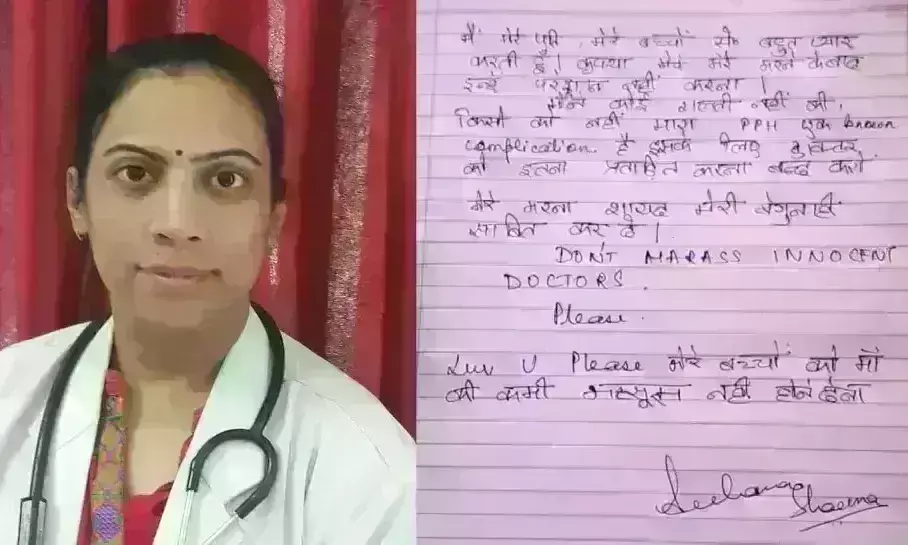 मैं मेरे पति, मेरे बच्चों से बहुत प्यार
करती हूँ। कृपया मेरे मेरे मरने के बाद
इन्हें परेशान नहीं करना।
मैंने कोई गलती नहीं की,
किसी को नहीं मारा PPH एक known
complication है इसके लिए डॉक्टर
को इतना प्रताड़ित करना बन्द करो।
मेरा मरना शायद मेरी बेगुनाही
साबित कर दे।
DON'T HARASS INNOCENT
DOCTORS.
Please.
Luv U Please मेरे बच्चों को माँ
की कमी महसूस नहीं होने देना
Archana
Sharma